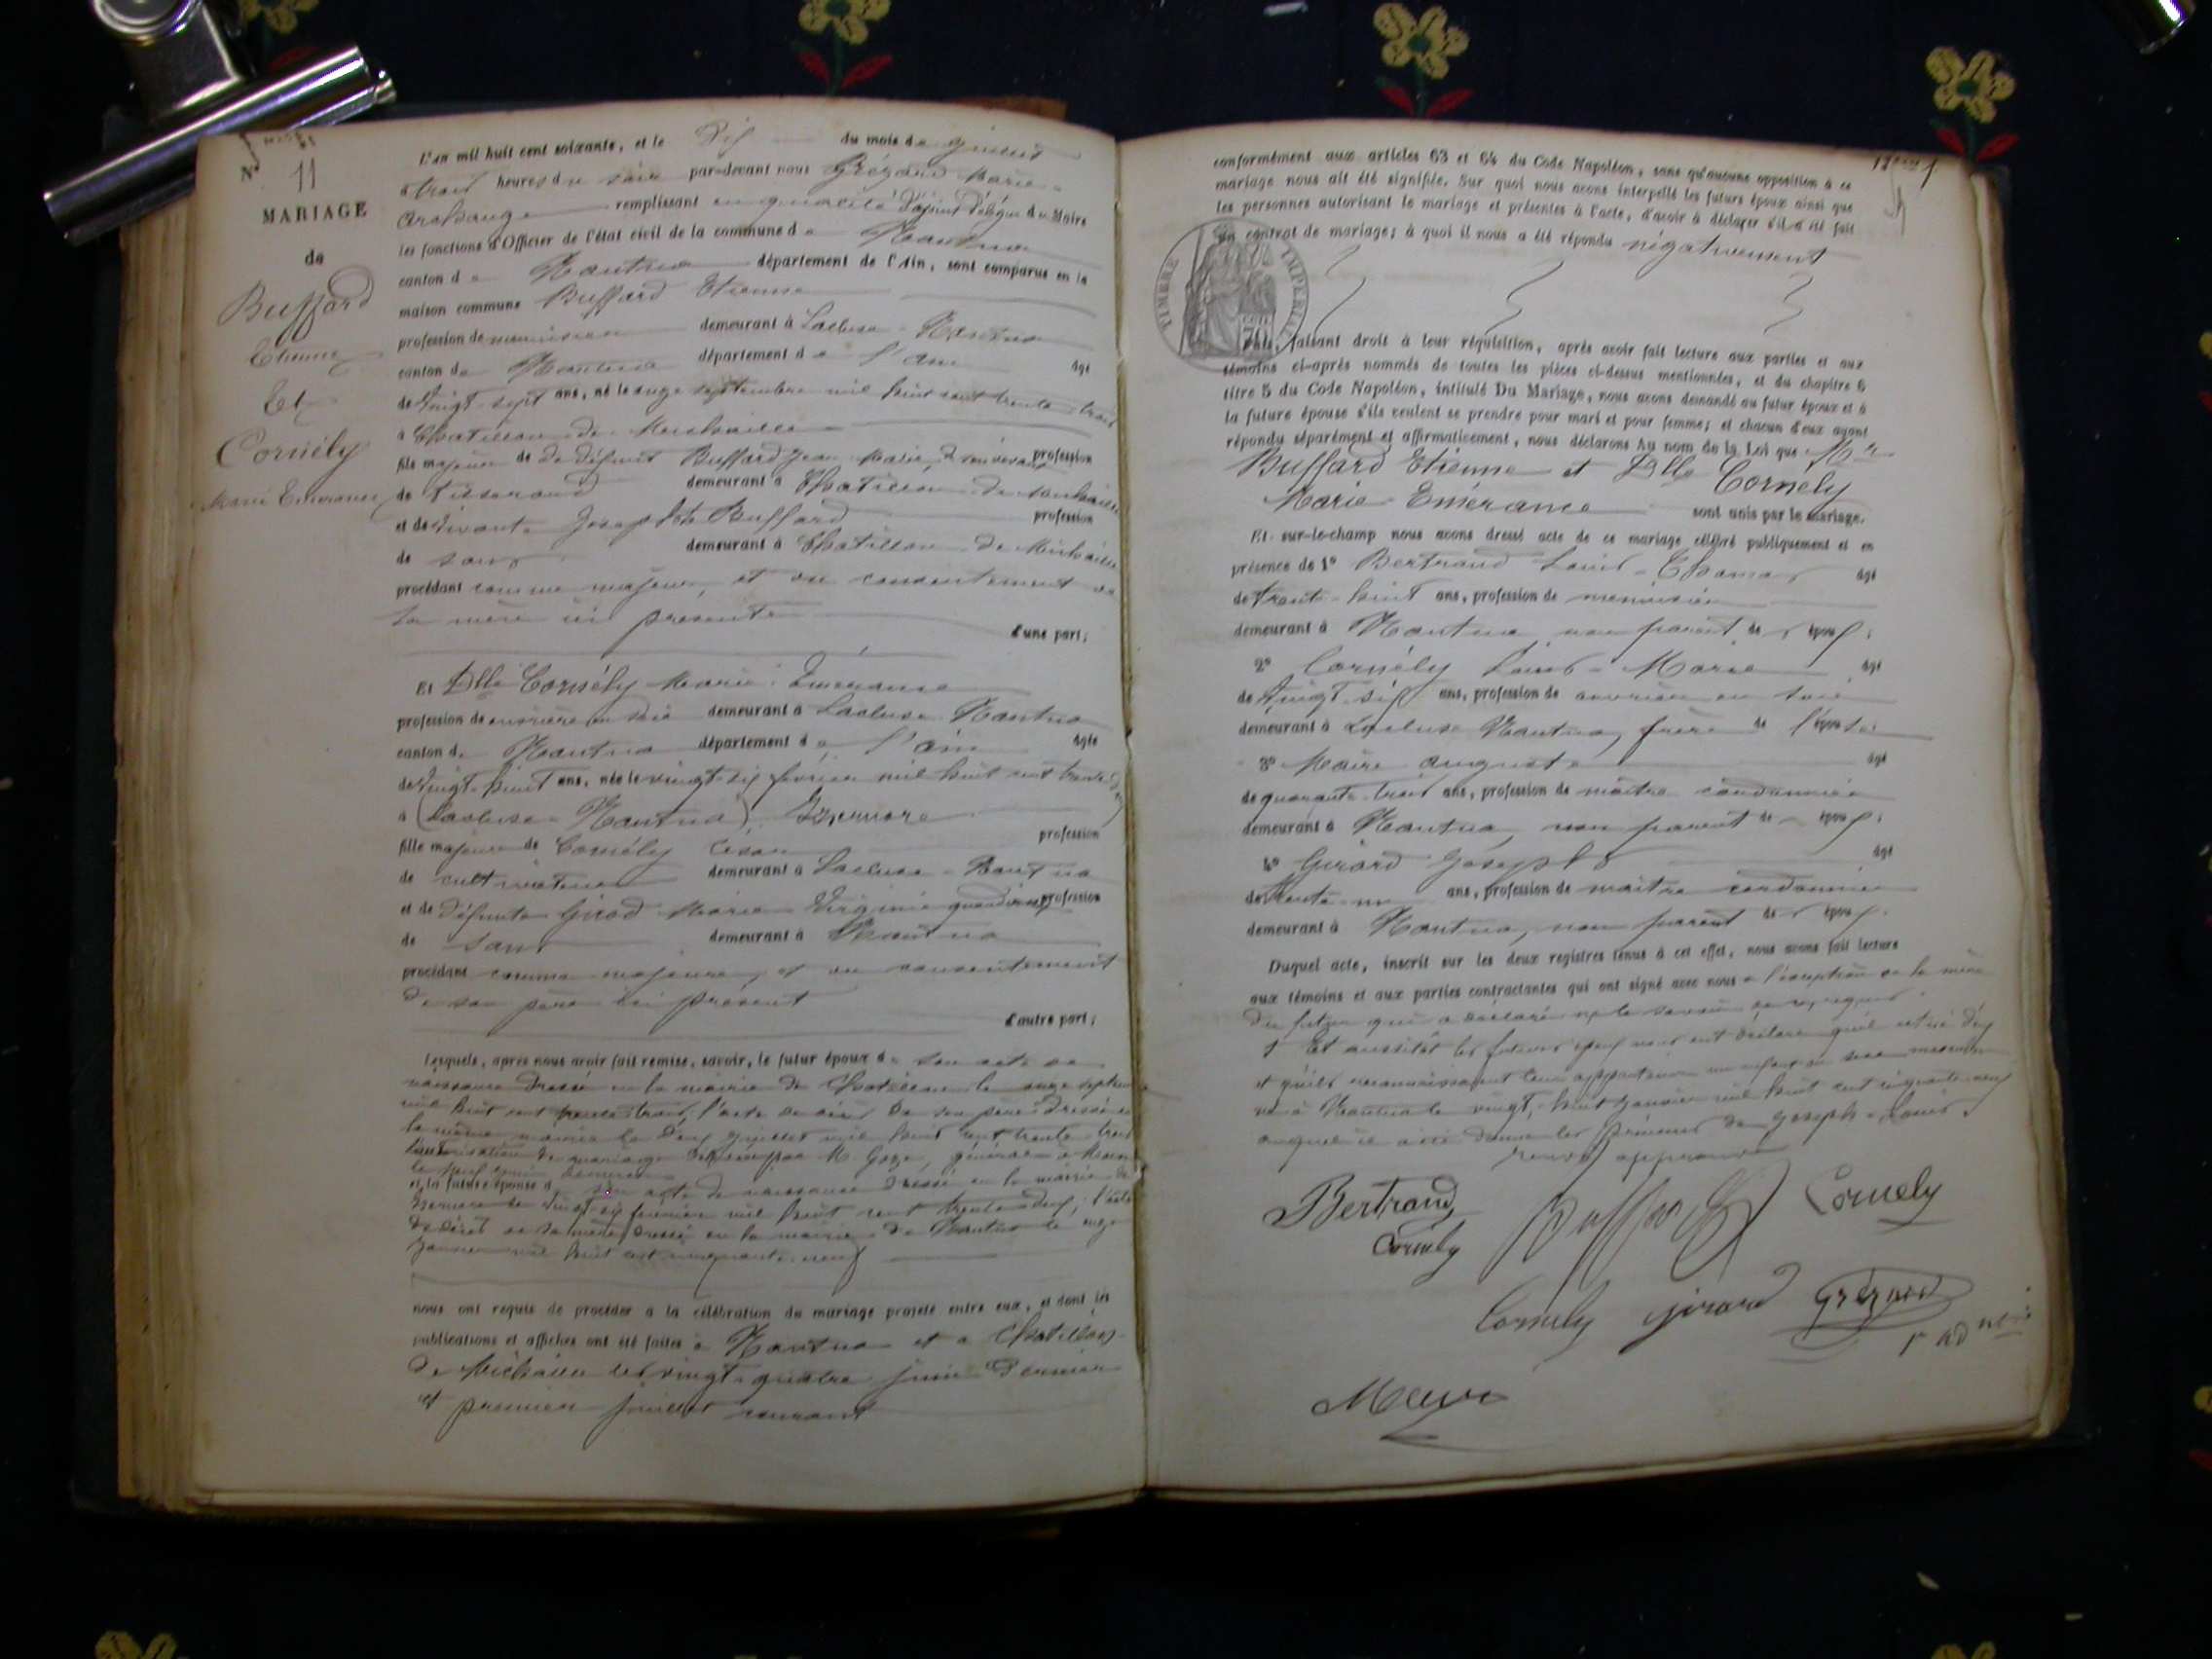 N° 11
MARIAGE
de
Buffard
Etienne
Et
Cornély
Marie Emerance
L'an mil huit cent soixante, et le Dix du mois de juillet
à trois heures du soir par-devant nous Grézard Marie
Archange remplissant en qualité d'adjoint délégué du Maire
les fonctions d'Officier de l'état civil de la commune de Nantua
canton de Nantua département de l'Ain, sont comparus en la
maison commune Buffard Etienne
profession de menuisier demeurant à Lacluse-Nantua
canton de Nantua département de l'ain âgé
de Vingt-sept ans, né le onze septembre mil huit cent trente trois
à Chatillon de Michaille
fils majeur de défunt Buffard Jean Marie, de son vivant profession
de tisserand demeurant à Chatillon de Michaille
et de vivante Josephte Buffard profession
de sans demeurant à Chatillon de Michaille
procédant comme majeur, et du consentement de
sa mère ici présente
d'une part;
Et Dlle Cornély Marie Emérance
profession de ouvrière en soie demeurant à Lacluse Nantua
canton de Nantua département de l'ain âgée
de Vingt-huit ans, née le vingt-six février mil huit cent trente deux
à (Lacluse-Nantua)
fille majeure de Cornély César profession
de cultivateur demeurant à Lacluse-Nantua
et de défunte Girod Marie Virginie quand vivait profession
de sans demeurant à Nantua
procédant comme majeure, et du consentement
de son père ici présent
d'autre part;
Lesquels, après nous avoir fait remise, savoir, le futur époux de son acte de
naissance dressé en la mairie de Chatillon le onze septembre
mil huit cent trente trois, l'acte de décès de son père dressé en
la même mairie le Deux juillet mil huit cent trente trois
l'autorisation de mariage
et la future épouse d son acte de naissance dressé en la mairie de
le vingt-six février mil huit cent trente deux; l'acte
de décès de sa mère dressé en la mairie de Nantua le onze
janvier mil huit cent cinquante-neuf
nous ont requis de procéder à la célébration du mariage projeté entre eux, et dont les
publications et affiches ont été faites à Nantua et à Chatillon
de Michaille les vingt-quatre juin dernier
et premier juillet courant
conformément aux articles 63 et 64 du Code Napoléon, sans qu'aucune opposition à ce
mariage nous ait été signifiée. Sur quoi nous avons interpellé les futurs époux ainsi que
les personnes autorisant le mariage et présentes à l'acte, d'avoir à déclarer s'il a été fait
un contrat de mariage; à quoi il nous a été répondu négativement
TIMBRE IMPERIAL
70
Puis, faisant droit à leur réquisition, après avoir fait lecture aux parties et aux
témoins ci-après nommés de toutes les pièces ci-dessus mentionnées, et du chapitre 6
titre 5 du Code Napoléon, intitulé Du Mariage, nous avons demandé au futur époux et à
la future épouse s'ils veulent se prendre pour mari et pour femme; et chacun d'eux ayant
répondu séparément et affirmativement, nous déclarons Au nom de la Loi que Mr
Buffard Etienne et Dlle Cornély
Marie Emérance sont unis par le mariage.
Et sur-le-champ nous avons dressé acte de ce mariage célébré publiquement et en
présence de 1° Bertrand Louis-Thomas âgé
de trente-huit ans, profession de menuisier
demeurant à Nantua non parent des époux;
2° Cornély Louis-Marie âgé
de Vingt-six ans, profession de ouvrier en soie
demeurant à Lacluse Nantua, frère de l'épouse
3° Maire auguste âgé
de quarante-trois ans, profession de maître cordonnier
demeurant à Nantua, non parent des époux;
4° Girard Joseph âgé
de trente-un ans, profession de maître cordonnier
demeurant à Nantua, non parent des époux.
Duquel acte, inscrit sur les deux registres tenus à cet effet, nous avons fait lecture
aux témoins et aux parties contractantes qui ont signé avec nous à l'exception de la mère
du futur qui a déclaré ne le savoir de ce requis.
Et aussitôt les futurs époux nous ont déclaré qu'il est né d'eux
et qu'ils reconnaissent leur appartenir un enfant du sexe masculin
né à Nantua le vingt-huit janvier mil huit cent cinquante neuf
auquel il a été donné les prénoms de Joseph-Louis
renvoi approuvé
Bertrand Buffard Cornely
Cornely
Cornely girard Grézard
Maire